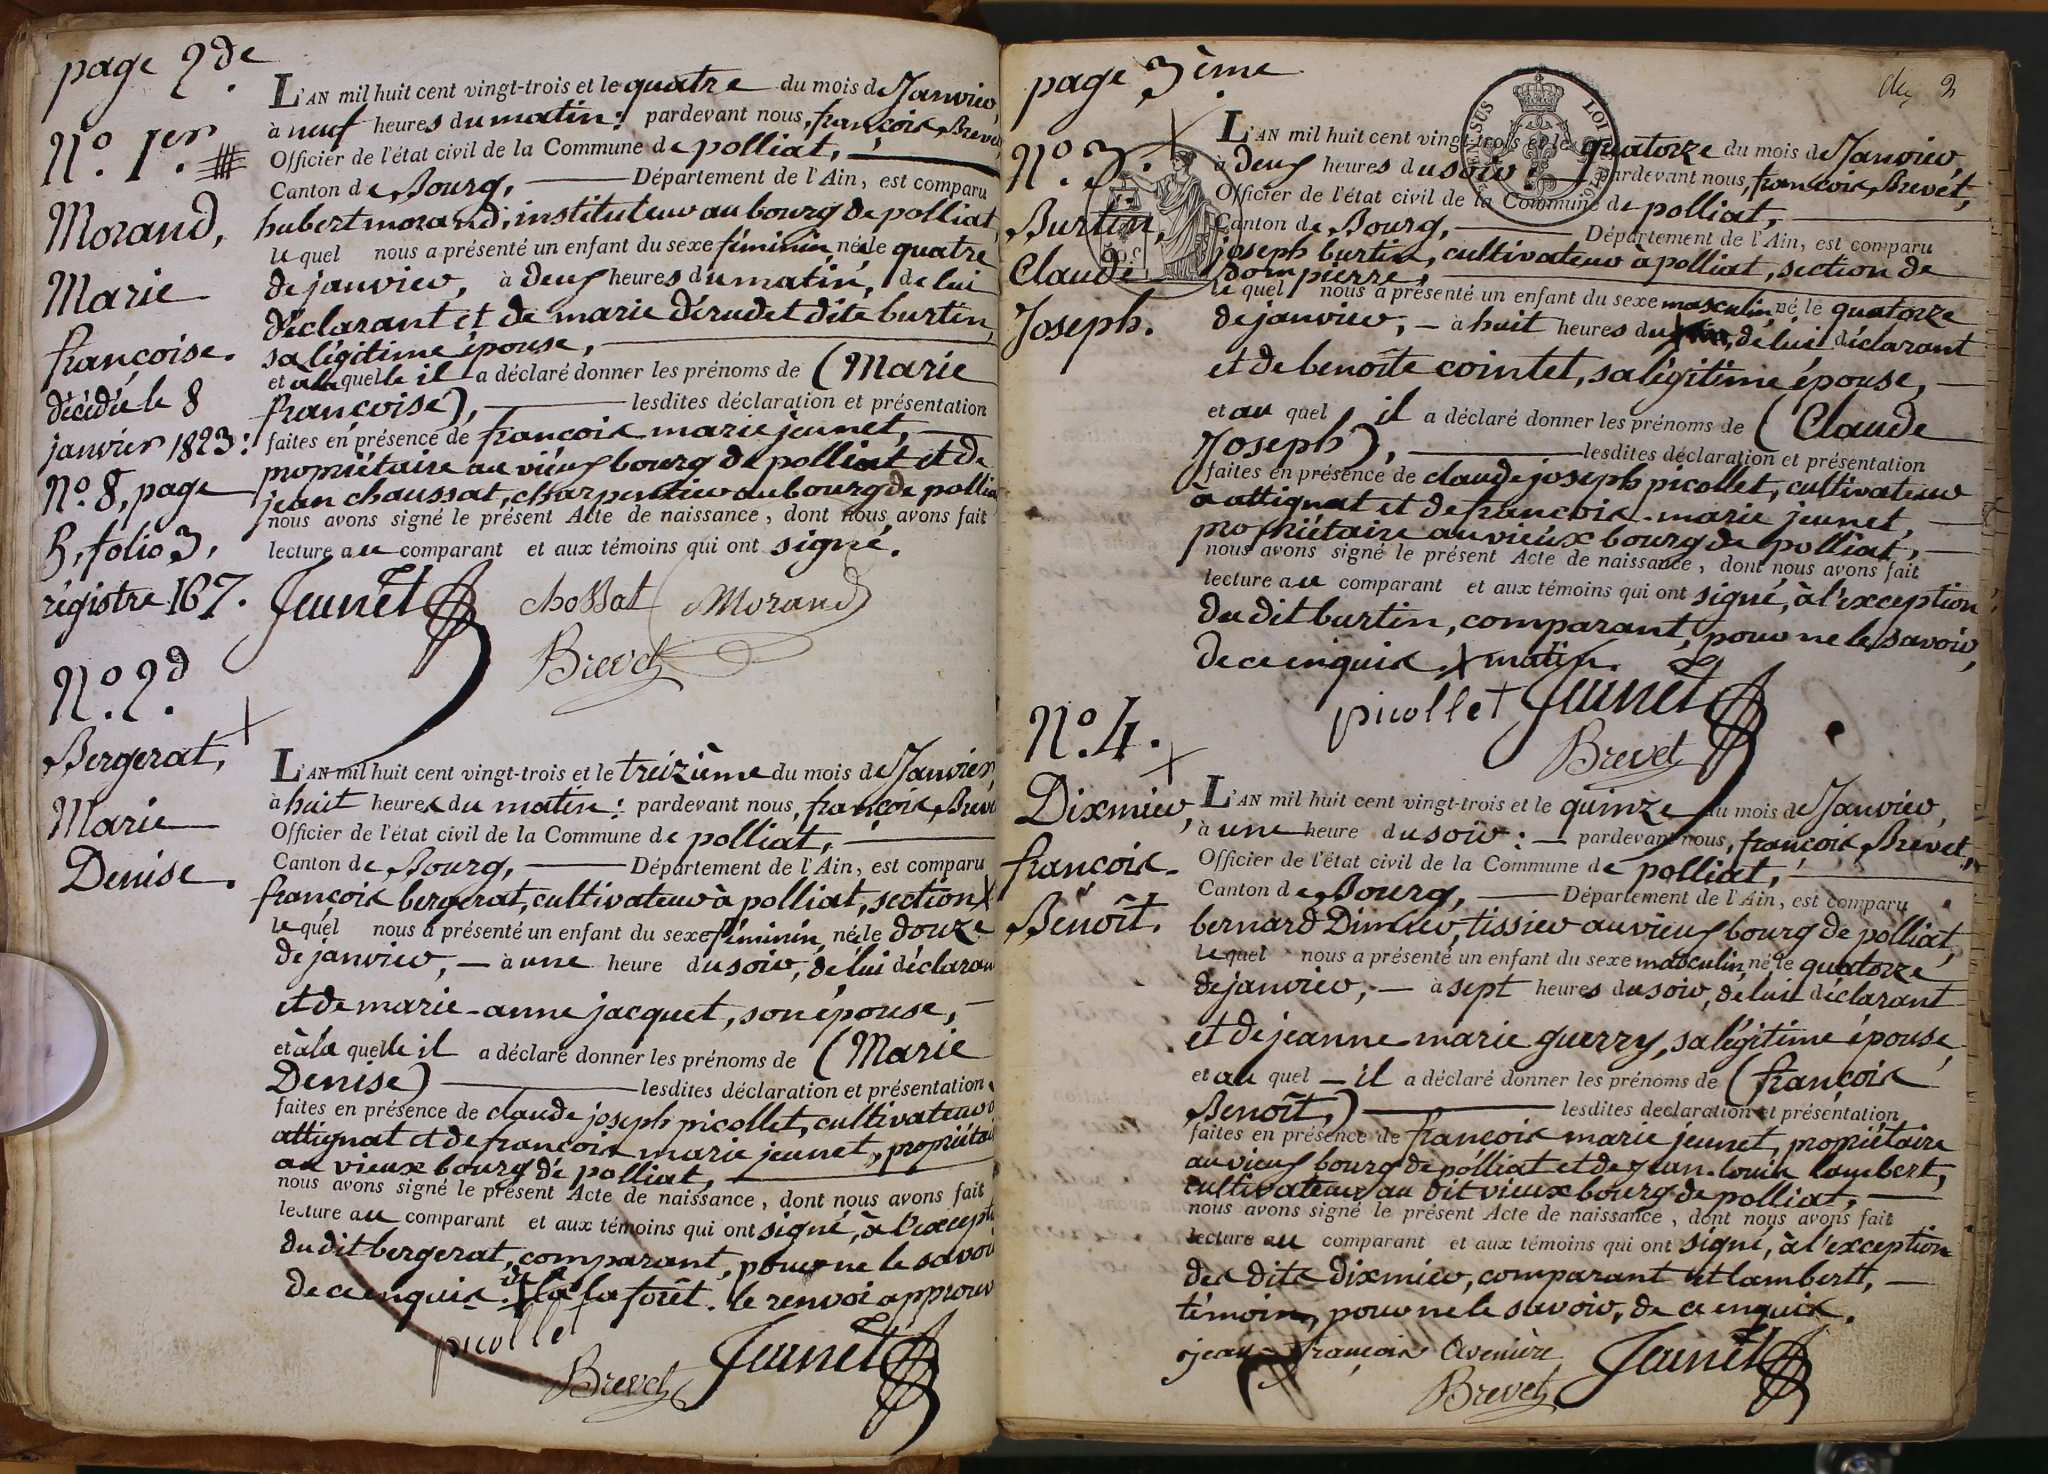 page 2de
N.o 1.er
Morand,
Marie
françoise.
décédée le 8
janvier 1823:
N.o 8, page
5, folio 3,
régistre 167.
L'AN mil huit cent vingt-trois et le quatre du mois de Janvier,
à neuf heures du matin: pardevant nous, françois Brevet,
Officier de l'état civil de la Commune de polliat,
Canton de Bourg, Département de l'Ain, est comparu
hubert morand, instituteur au bourg de polliat,
le quel nous a présenté un enfant du sexe féminin, née le quatre
de janvier, à deux heures du matin, de lui
déclarant et de marie dérudet dite burtin,
sa légitime épouse,
et à la quelle il a déclaré donner les prénoms de (Marie
françoise), lesdites déclaration et présentation
faites en présence de françois-marie jeunet,
propriétaire au vieux bourg de polliat et de
jean chaussat, charpentier au bourg de polliat
nous avons signé le présent Acte de naissance, dont nous avons fait
lecture au comparant et aux témoins qui ont signé.
Jeunet chossat Morand
Brevet
N.o 2.d
Bergerat,
Marie
Denise.
L'AN mil huit cent vingt-trois et le treizième du mois de Janvier,
à huit heures du matin: pardevant nous, françois Brevet
Officier de l'état civil de la Commune de polliat,
Canton de Bourg, Département de l'Ain, est comparu
françois bergerat, cultivateur à polliat, section X
le quel nous a présenté un enfant du sexe féminin, née le douze
de janvier, à une heure du soir, de lui déclarant
et de marie-anne jacquet, son épouse,
et à la quelle il a déclaré donner les prénoms de (Marie
Denise) lesdites déclaration et présentation
faites en présence de claude joseph picollet, cultivateur à
attignat et de françois marie jeunet, propriétaire
au vieux bourg de polliat,
nous avons signé le présent Acte de naissance, dont nous avons fait
lecture au comparant et aux témoins qui ont signé, à l'exception
du dit bergerat, comparant, pour ne le savoir
de ce enquis. X de la forêt. le renvoi approuvé
picollet
Brevet Jeunet
page 3ème
2
N.o 3.
Burtin,
Claude
Joseph.
L'AN mil huit cent vingt-trois et le quatorze du mois de Janvier,
à deux heures du soir: pardevant nous, françois Brevet,
Officier de l'état civil de la Commune de polliat,
Canton de Bourg, Département de l'Ain, est comparu
joseph burtin, cultivateur à polliat, section de
dompierre,
le quel nous a présenté un enfant du sexe masculin, né le quatorze
de janvier, à huit heures du X de lui déclarant
et de benoîte cointet, sa légitime épouse,
et au quel il a déclaré donner les prénoms de (Claude
Joseph), lesdites déclaration et présentation
faites en présence de claude joseph picollet, cultivateur
à attignat et de françois-marie jeunet,
propriétaire au vieux bourg de polliat,
nous avons signé le présent Acte de naissance, dont nous avons fait
lecture au comparant et aux témoins qui ont signé, à l'exception
du dit burtin, comparant, pour ne le savoir,
de ce enquis. X matin.
picollet Jeunet
Brevet
N.o 4.
Dixmier,
françois-
Benoît.
L'AN mil huit cent vingt-trois et le quinze du mois de Janvier,
à une heure du soir: pardevant nous, françois Brevet,
Officier de l'état civil de la Commune de polliat,
Canton de Bourg, Département de l'Ain, est comparu
bernard Dimier, tissier au vieux bourg de polliat,
le quel nous a présenté un enfant du sexe masculin, né le quatorze
de janvier, à sept heures du soir, de lui déclarant
et de jeanne marie guerry, sa légitime épouse,
et au quel il a déclaré donner les prénoms de (françois
Benoît,) lesdites declaration et présentation
faites en présence de françois marie jeunet, propriétaire
au vieux bourg de polliat et de jean-louis lambert,
cultivateur au dit vieux bourg de polliat,
nous avons signé le présent Acte de naissance, dont nous avons fait
lecture au comparant et aux témoins qui ont signé, à l'exception
des dits dixmier, comparant et lambert,
témoin, pour ne le savoir, de ce enquis.
jean françois Avenière Jeunet
Brevet